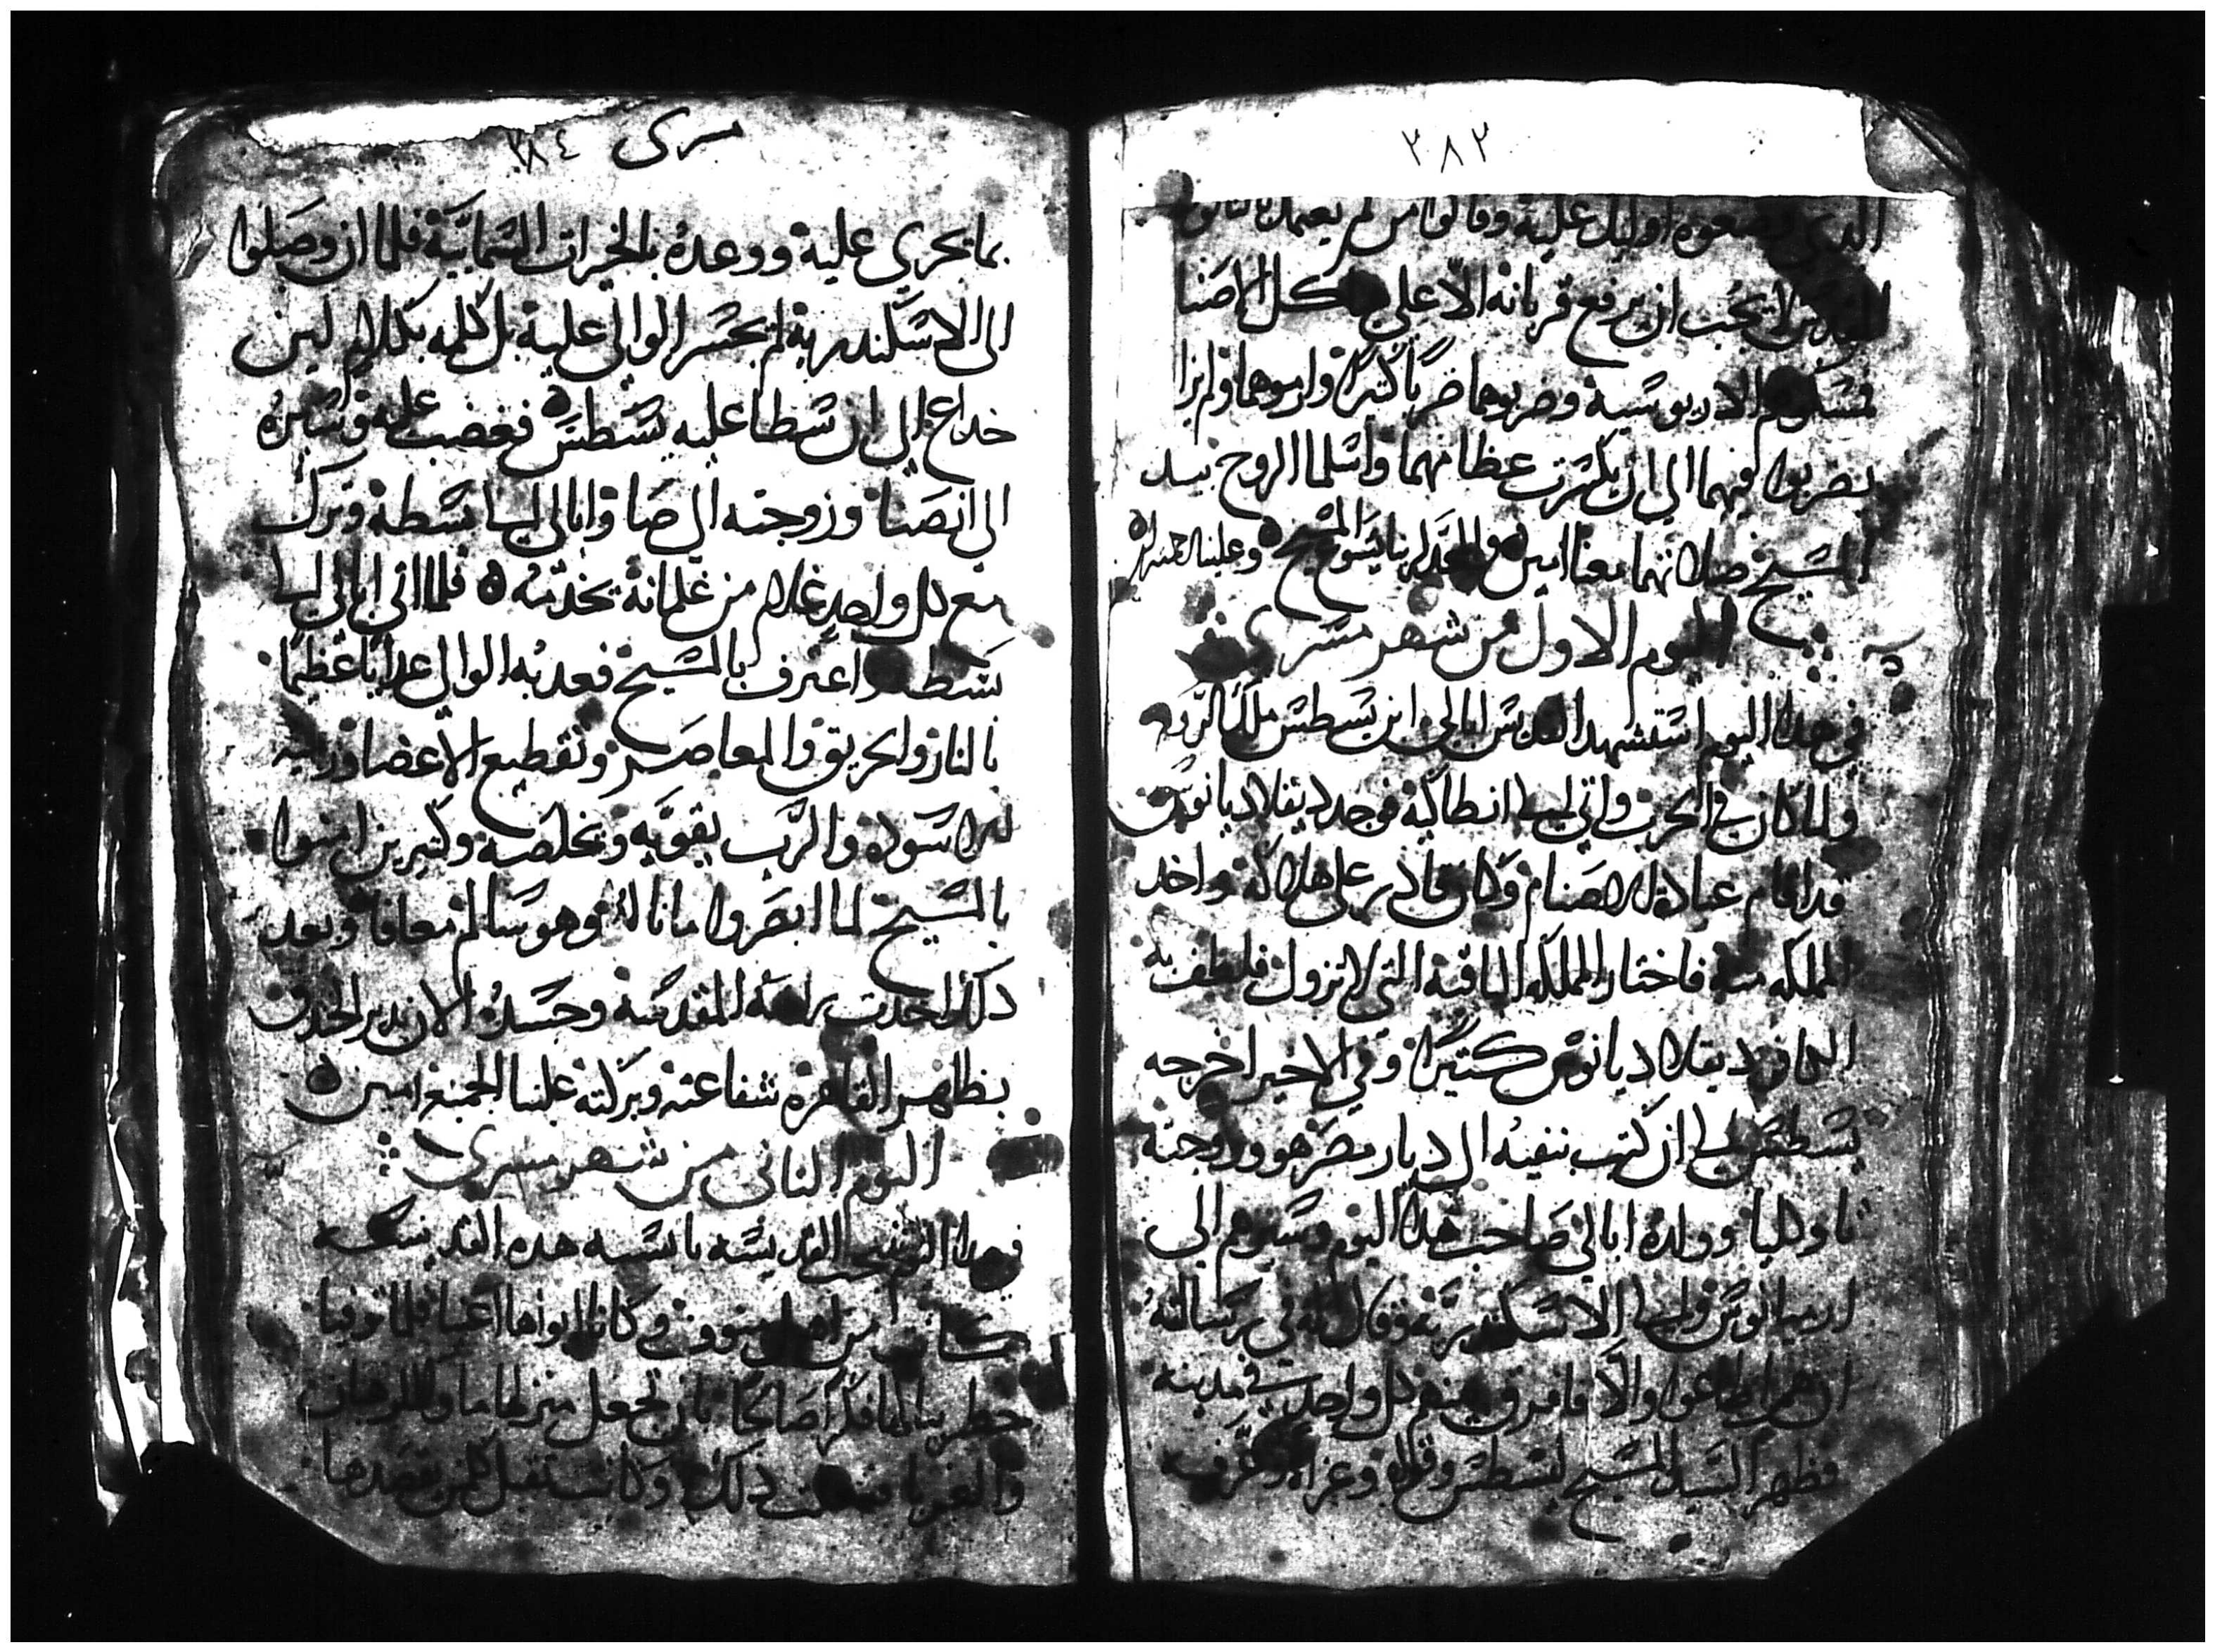 ٢٨٣
الدي وضعوه اوليك عليه وقالوا من لم يعمل
لا يجب ان يرفع قربانه الا على كل الاصنا
الاريوسية وضربوهما ضربا كتيرا وارموهما ولم يزا
يضربوا فيهما الي ان تكسرت عظامهما واسلما الروح بيد
المسيح صلاتهما معنا امين والمجد لربنا يسوع المسيح ه وعلينا رحمته امين
اليوم الاول من شهر مسري
في هدا اليوم استشهد القديس ابالي ابن يسطس ملك الروم
ولما كان في الحرب واتي الي انطاكية فوجد ديقلاديانوس
قد اقام عبادة الاصنام وكان قادر على هلاكه واخد
المملكه منه فاختار المملكه الباقية التي لا تزول فلطف به
الكافر ديقلاديانوس كتيرا وفي الاخير اخرجه
يسطس الي ان كتب بنفيه الي ديار مصر هو وزوجته
تاوكليا وولده ابالي صاحب هدا اليوم وسيرهم الي
ارمانيوس والي الاسكندرية وقال له في رسالته
ان هم اطاعوا والا فافرق بينهم كل واحد في مدينه
فظهر السيد المسيح ليسطس وقواه وعزاه وعرفه
مسرى ٣٨٤
بما يجري عليه ووعده بالخيرات السماييَّة فلما ان وصلوا
الى الاسكندرية لم يجسر الوالي عليه بل كلمه بكلام لين
خداع الي ان سطا عليه يسطس ه فغضب عليه وسيره
الي انصنا وزوجته الي صا وابالي الي بسطه وترك
مع كل واحد غلام من غلمانه يخدمه ه فلما اتى ابالي الي
بسطه واعترف بالمسيح فعدبه الوالي عدابا عظيما
بالنار والحريق والمعاصر وتقطيع الاعضا ورميه
للاسوده والرب يقويه ويخلصه وكتيرين امنوا
بالمسيح لما ابصروا ما ناله وهو سالم معافا وبعد
دلك اخدت راسه المقدسه وجسده الان بدير الخندق
بظاهر القاهره شفاعته وبركته علينا الجميع امين ه
اليوم التاني من شهر مسرى
في هدا اليوم تنيحت القديسه باييسه هده القديسه
كانت من اهل منوف وكانا ابواها اغنيا فلما توفيا
خطر ببالها فكرا صالحا بان تجعل منزلها ماوا للرهبان
والغربا ففعلت دلك وكانت تقبل كلمن يقصدها